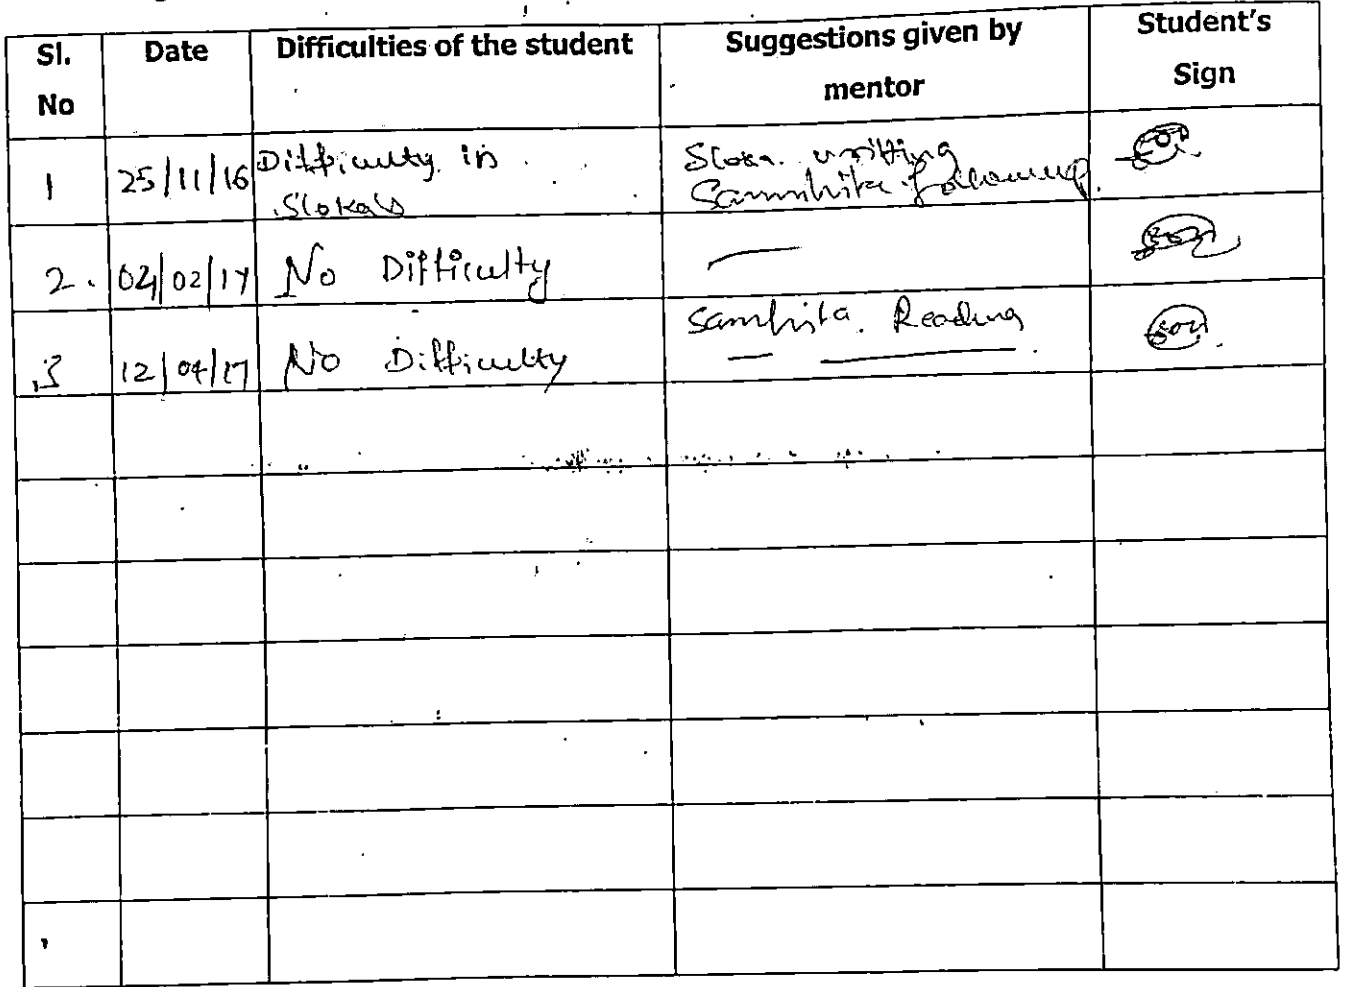 Sl. No | Date | Difficulties of the student | Suggestions given by mentor | Student's Sign
1 | 25/11/16 | Difficulty in Slokas | Sloka writing Samhita
2. | 02/02/17 | No Difficulty | —
3 | 12/04/17 | No Difficulty | Samhita Reading